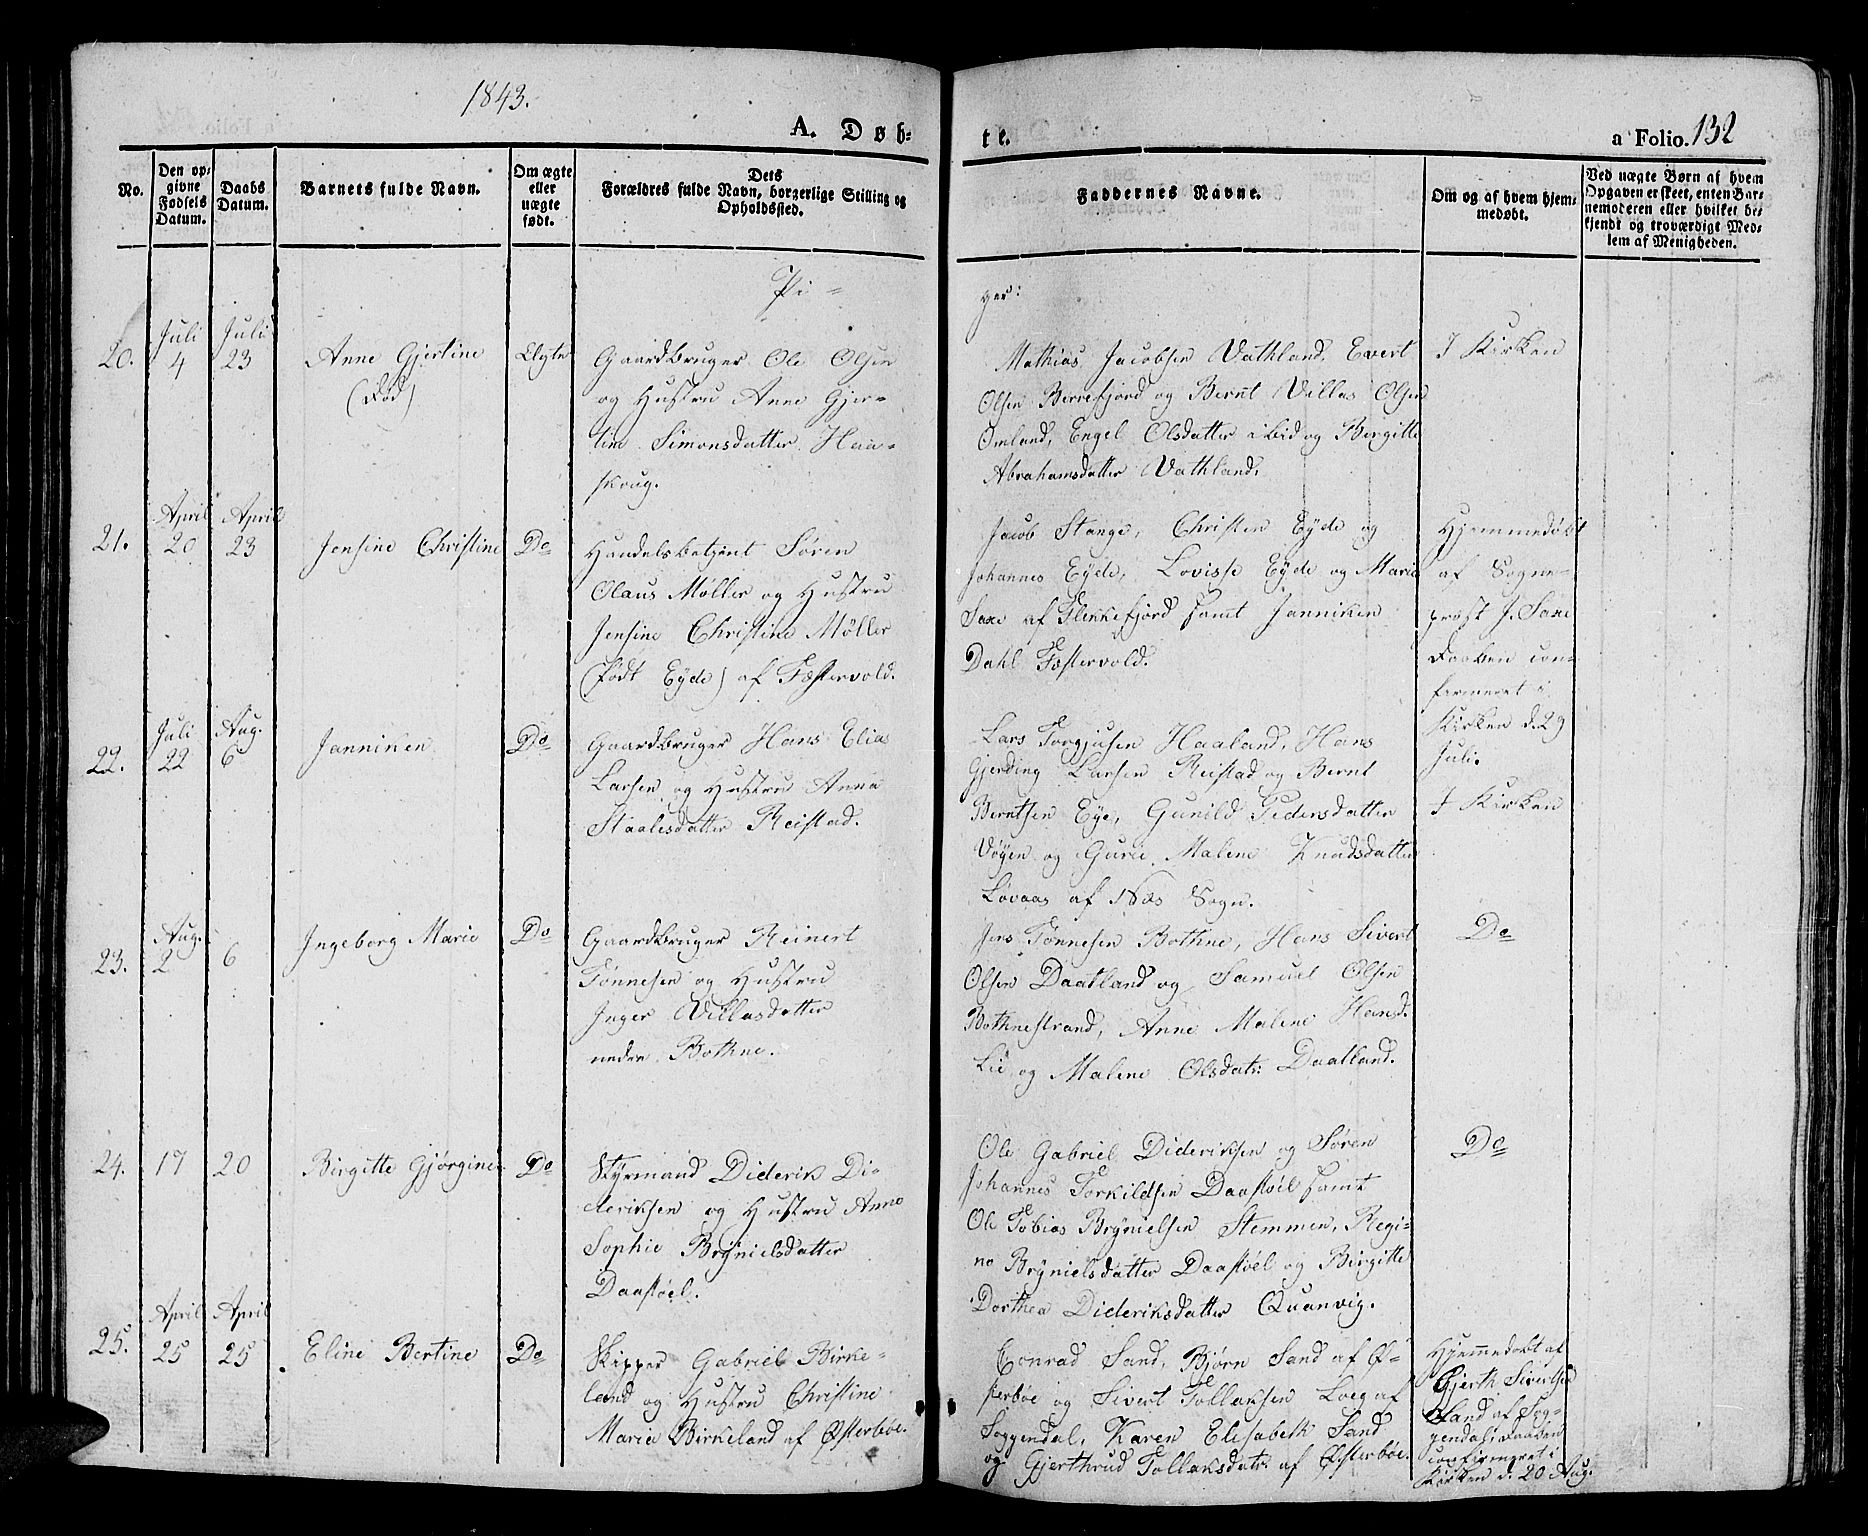 1843.
A. Døb-
te.
a Folio. 132
No.
Den op-
givne
Fødsels
Datum.
Daabs
Datum.
Barnets fulde Navn.
Om ægte
eller
uægte
født.
Dets
Forældres fulde Navn, borgerlige Stilling og
Opholdssted.
Faddernes Navne.
Om og af hvem hjem-
medøbt.
Ved uægte Børn af hvem
Opgaven er skeet, enten Bar-
nemoderen eller hvilket be-
kjendt og troværdigt Med-
lem af Menigheden.
Pi-
ger:
20.
Juli
4
Juli
23
Anne Gjertine
(Død)
Ægte
Gaardbruger Ole Olsen
og Hustru Anne Gjer-
tine Simonsdatter Haa-
skoug.
Mathias Jacobsen Vathland, Evert
Olsen Berrefjord og Bernt Villas Olsen
Omland, Engel Olsdatter ibid og Birgitte
Abrahamsdatter Vathland.
I Kirken
21.
April
20
April
23
Jensine Christine
Do
Handelsbetjent Søren
Olaus Møller og Hustru
Jensine Christine Møller
(født Eyde) af Fæstervold.
Jacob Stange, Christen Eyde og
Johannes Eyde, Lovisse Eyde og Maria
Saxe af Flekkefjord samt Janniken
Dahl Fæstervold.
Hjemmedøbt
af Sogne-
prest J. Saxe
Daaben con-
firmeret i
Kirken d. 29
Juli.
22.
Juli
22
Aug.
6
Janniken
Do
Gaardbruger Hans Elias
Larsen og Hustru Anna
Staalesdatter Reistad.
Lars Torgjusen Haaland, Hans
Gjerding Larsen Reistad og Bernt
Berntsen Eye, Gunild Pedersdatter
Vøyen og Gurie Malene Knudsdatter
Løvaas af Næs Sogn.
I Kirken
23.
Aug.
2
6
Ingeborg Marie
Do
Gaardbruger Reinert
Tønnesen og Hustru
Inger Villasdatter
nedre Bothne.
Jens Tønnesen Bothne, Hans Sivert
Olsen Daatland og Samuel Olsen
Bothnestrand, Anne Malene Hansd.
Lie og Malene Olsdatr. Daatland.
Do
24.
17
20
Birgitte Gjørgine
Do
Styrmand Diderik Di-
deriksen og Hustru Anne
Sophie Brynielsdatter
Daastøel.
Ole Gabriel Dideriksen og Søren
Johannes Torkildsen Daastøel samt
Ole Tobias Brynielsen Stemmen, Regi-
ne Brynielsdatter Daastøel og Birgitte
Dorthea Dideriksdatter Quanvig.
Do
25.
April
25
April
25
Eline Bertine
Do
Skipper Gabriel Birke-
land og Hustru Christine
Marie Birkeland af Østerbøe.
Conrad Sand, Bjørn Sand af Ø-
sterbøe og Sivert Tollaksen Loeg af
Soggendal, Karen Elisabeth Sand
og Gjerthrud Tollaksdatr. af Østerbøe.
Hjemmedøbt af
Gjerth Sivertsen
land af Sog-
gendal; Daaben
confirmeret i
Kirken d. 20 Aug.